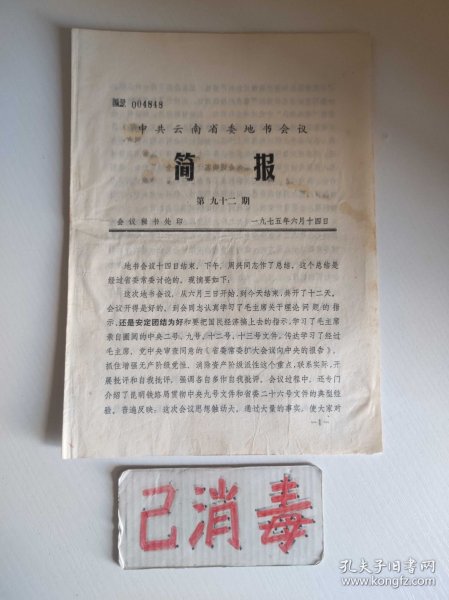 编号 004848
中共云南省委地书会议
简 报
第九十二期
会议秘书处印 一九七五年六月十四日
地书会议十四日结束，下午，周兴同志作了总结。这个总结是
经过省委常委讨论的。现摘要如下：
这次地书会议，从六月三日开始，到今天结束，共开了十二天。
会议开得是好的。到会同志认真学习了毛主席关于理论问题的指
示，还是安定团结为好和要把国民经济搞上去的指示，学习了毛主席
亲自圈阅的中央二号、九号、十二号、十三号文件，传达学习了经过
毛主席、党中央审查同意的《省委常委扩大会议向中央的报告》，
抓住增强无产阶级党性、消除资产阶级派性这个重点，联系实际，开
展批评和自我批评，强调各自多作自我批评。会议过程中，还专门
介绍了昆明铁路局贯彻中央九号文件和省委二十六号文件的典型经
验。普遍反映：这次会议思想触动大，通过大量的事实，使大家对
—1—
已消毒
孔夫子旧书网
www.kongfz.com